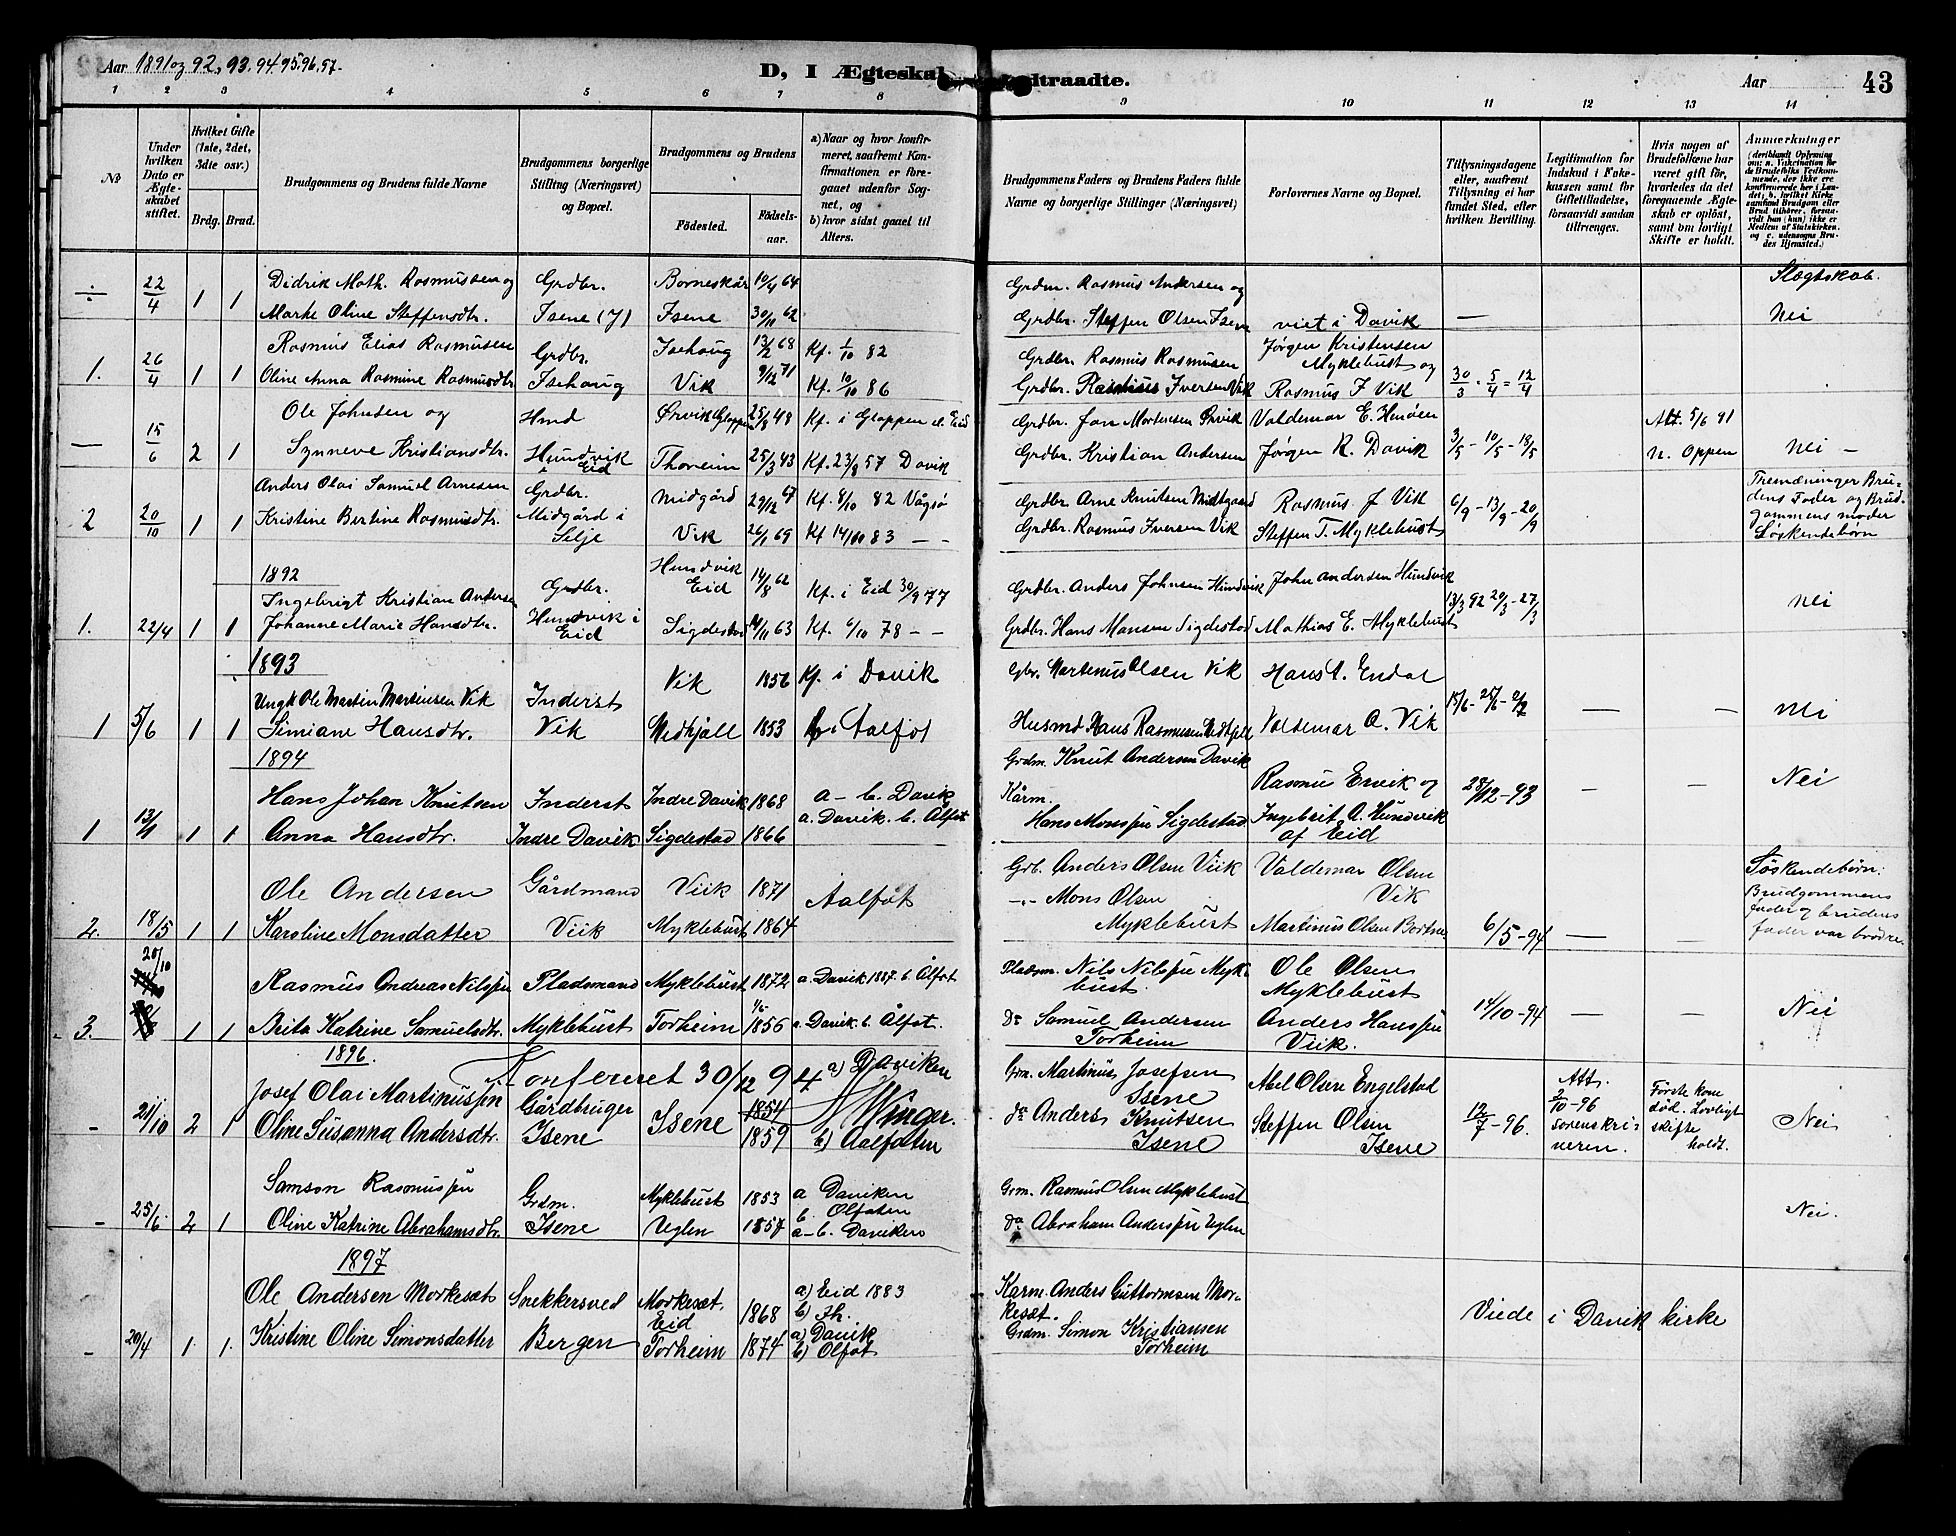 Aar 1891 og 92, 93. 94. 95. 96. 97.
D, I Ægteskab Indtraadte.
Aar
43
1 2 3 4 5 6 7 8 9 10 11 12 13 14
№
Under hvilken Dato er Ægteskabet stiftet.
Hvilket Gifte (1ste, 2det, 3die osv.)
Brdg. Brud.
Brudgommens og Brudens fulde Navne
Brudgommens borgerlige Stilling (Næringsvei) og Bopæl.
Brudgommens og Brudens
Fødested. Fødsels-aar.
a) Naar og hvor konfirmeret, saafremt Konfirmationen er foregaaet udenfor Sognet, og
b) hvor sidst gaaet til Alters.
Brudgommens Faders og Brudens Faders fulde Navne og borgerlige Stillinger (Næringsvei)
Forlovernes Navne og Bopæl.
Tillysningsdagene eller, saafremt Tillysning ei har fundet Sted, efter hvilken Bevilling.
Legitimation for Indskud i Enkekassen samt for Giftetilladelse, forsaavidt saadan tiltrænges.
Hvis nogen af Brudefolkene har været gift før, hvorledes da det foregaaende Ægteskab er opløst, samt om lovligt Skifte er holdt.
Anmærkninger
÷ 22/4 1 1 Didrik Math. Rasmussen og Grdbr. Borneskår 10/4 64 Grdm. Rasmus Andersen og Slægtskab.
Marte Oline Steffensdtr. Isene (7) Isene 30/11 62 Grdbr. Steffen Olsen Isene viet i Davik — Nei
1. 26/4 1 1 Rasmus Elias Rasmusen Grdbr. Isehaug 13/2 68 Kf. 1/10 82 Grdbr. Rasmus Rasmusen Jørgen Kristensen Myklebust og
Oline Anna Rasmine Rasmusdtr. Isehaug Vik 9/12 71 Kf. 10/10 86 Grdbr. Rasmus Iversen Vik Rasmus J Vik 30/3 = 5/4 = 12/4
— 15/6 2 1 Ole Johnsen og Hmd Ørvik Gloppen 25/8 48 Kf. i Gloppen Grdbr. Jon Mortensen Ørvik Valdemar E. Henøen Att. 5/6 91
Synneve Kristiansdtr. Hundvik i Eid Thoreim 25/3 43 Kf. 23/8 57 Davik Grdbr. Kristian Andersen Jørgen R. Davik 3/5 - 10/5 - 18/5 N. Oppen Nei —
2 20/10 1 1 Anders Olai Samuel Arnesen Grdbr. Midgård 29/12 67 Kf. 8/10 82 Vågsø Grdbr. Arne Knutsen Midtgaard Rasmus J Vik 6/9 - 13/9 - 20/9 Tremæninger Brudens Fader og Brudgommens moder Søskendebørn
Kristine Bertine Rasmusdtr. Midgård i Selje Vik 26/1 69 Kf 14/10 83 — - Grdbr. Rasmus Iversen Vik Steffen T. Myklebust
1892
1. 22/4 1 1 Ingebrigt Kristian Andersen Grdbr. Hundvik Eid 14/8 62 Kf. i Eid 30/9 77 Grdbr. Anders Johnsen Hundvik John Andersen Hundvik 13/3 92 20/3 - 27/3 Nei
Johanne Marie Hansdtr. Hundvik i Eid Sigdestad 14/11 63 Kf. 6/10 78 - - Grdbr. Hans Mansen Sigdestad Mathias E. Myklebust
1893
1 5/6 1 1 Ungk Ole Martin Martinsen Vik Inderst Vik 1856 Kf. i Davik Gbr. Martenus Olsen Vik Hans A. Endal
Simiane Hansdtr. Vik Medhjåll 1853 Aalfot Husmd Hans Rasmusen Valdemar A. Vik — — Nei
1894
1 13/1 1 1 Hans Johan Knutsen Inderst Indre Davik 1868 a - b. Davik Grdm. Knut Andersen Davik Rasmus Ervik og 28/12-93 - - Nei
Anna Hansdtr. Indre Davik Sigdestad 1866 a. Davik. b. Ålfot Kårm. Hans Monssen Sigdestad Ingebrit A. Hundvik af Eid
2. 18/5 1 1 Ole Andersen Gårdmand Viik 1871 Aalfot Grb. Anders Olsen Viik Valdemar Olsen Vik Søskendebørn: Brudgommens fader og brudens fader var brødre
Karoline Monsdatter Viik Myklebust 1864 -.- Mons Olsen Myklebust Martinus Olsen 6/5-94 — —
3. 20/10 1 1 Rasmus Andreas Nilssen Pladsmand Myklebust 1872 a. Davik 1887. b. Ålfot Pladsm. Nils Nilssen Myklbust. Ole Olsen Myklebust
Brita Katrine Samuelsdtr. Myklebust Torheim 1856 a. Davik. b. Ålfot. do Samuel Andersen Torheim Anders Hanssen Viik. 14/10-94 — — Nei
1896. Konfereret 30/12 94 Winger.
- 21/10 2 1 Josef Olai Martinussen Gårdbruger Isene 1854 a) Daviken Grm. Martinus Josefsen Isene Abel Olsen Engelstad 12/7-96. Att. 2/10-96 sorenskriveren. Første kone død. Lovligt skifte holdt. Nei
Oline Susanna Andersdtr. Isene 1859 b) Aalfoten do Anders Knutsen Isene Steffen Olsen Isene
- 25/6 2 1 Samson Rasmussen Grdm. Myklebust 1853 a Daviken b. Olfoten Grm. Rasmus Olsen Myklebust
Oline Katrine Abrahamsdtr. Isene Uglen 1857 a-b. Daviken do Abraham Anderssen Uglen Nei.
1897
- 20/4 1. 1. Ole Andersen Morkesæt Snekkersved Morkesæt. Eid 1868 a) Eid 1883 b) Karm. Anders Guttormsen Morkesæt.
Kristine Oline Simonsdatter Bergen Torheim 1874 a) Davik b) Olfot Grdm. Simon Kristiansen Torheim Viede i Davik kirke